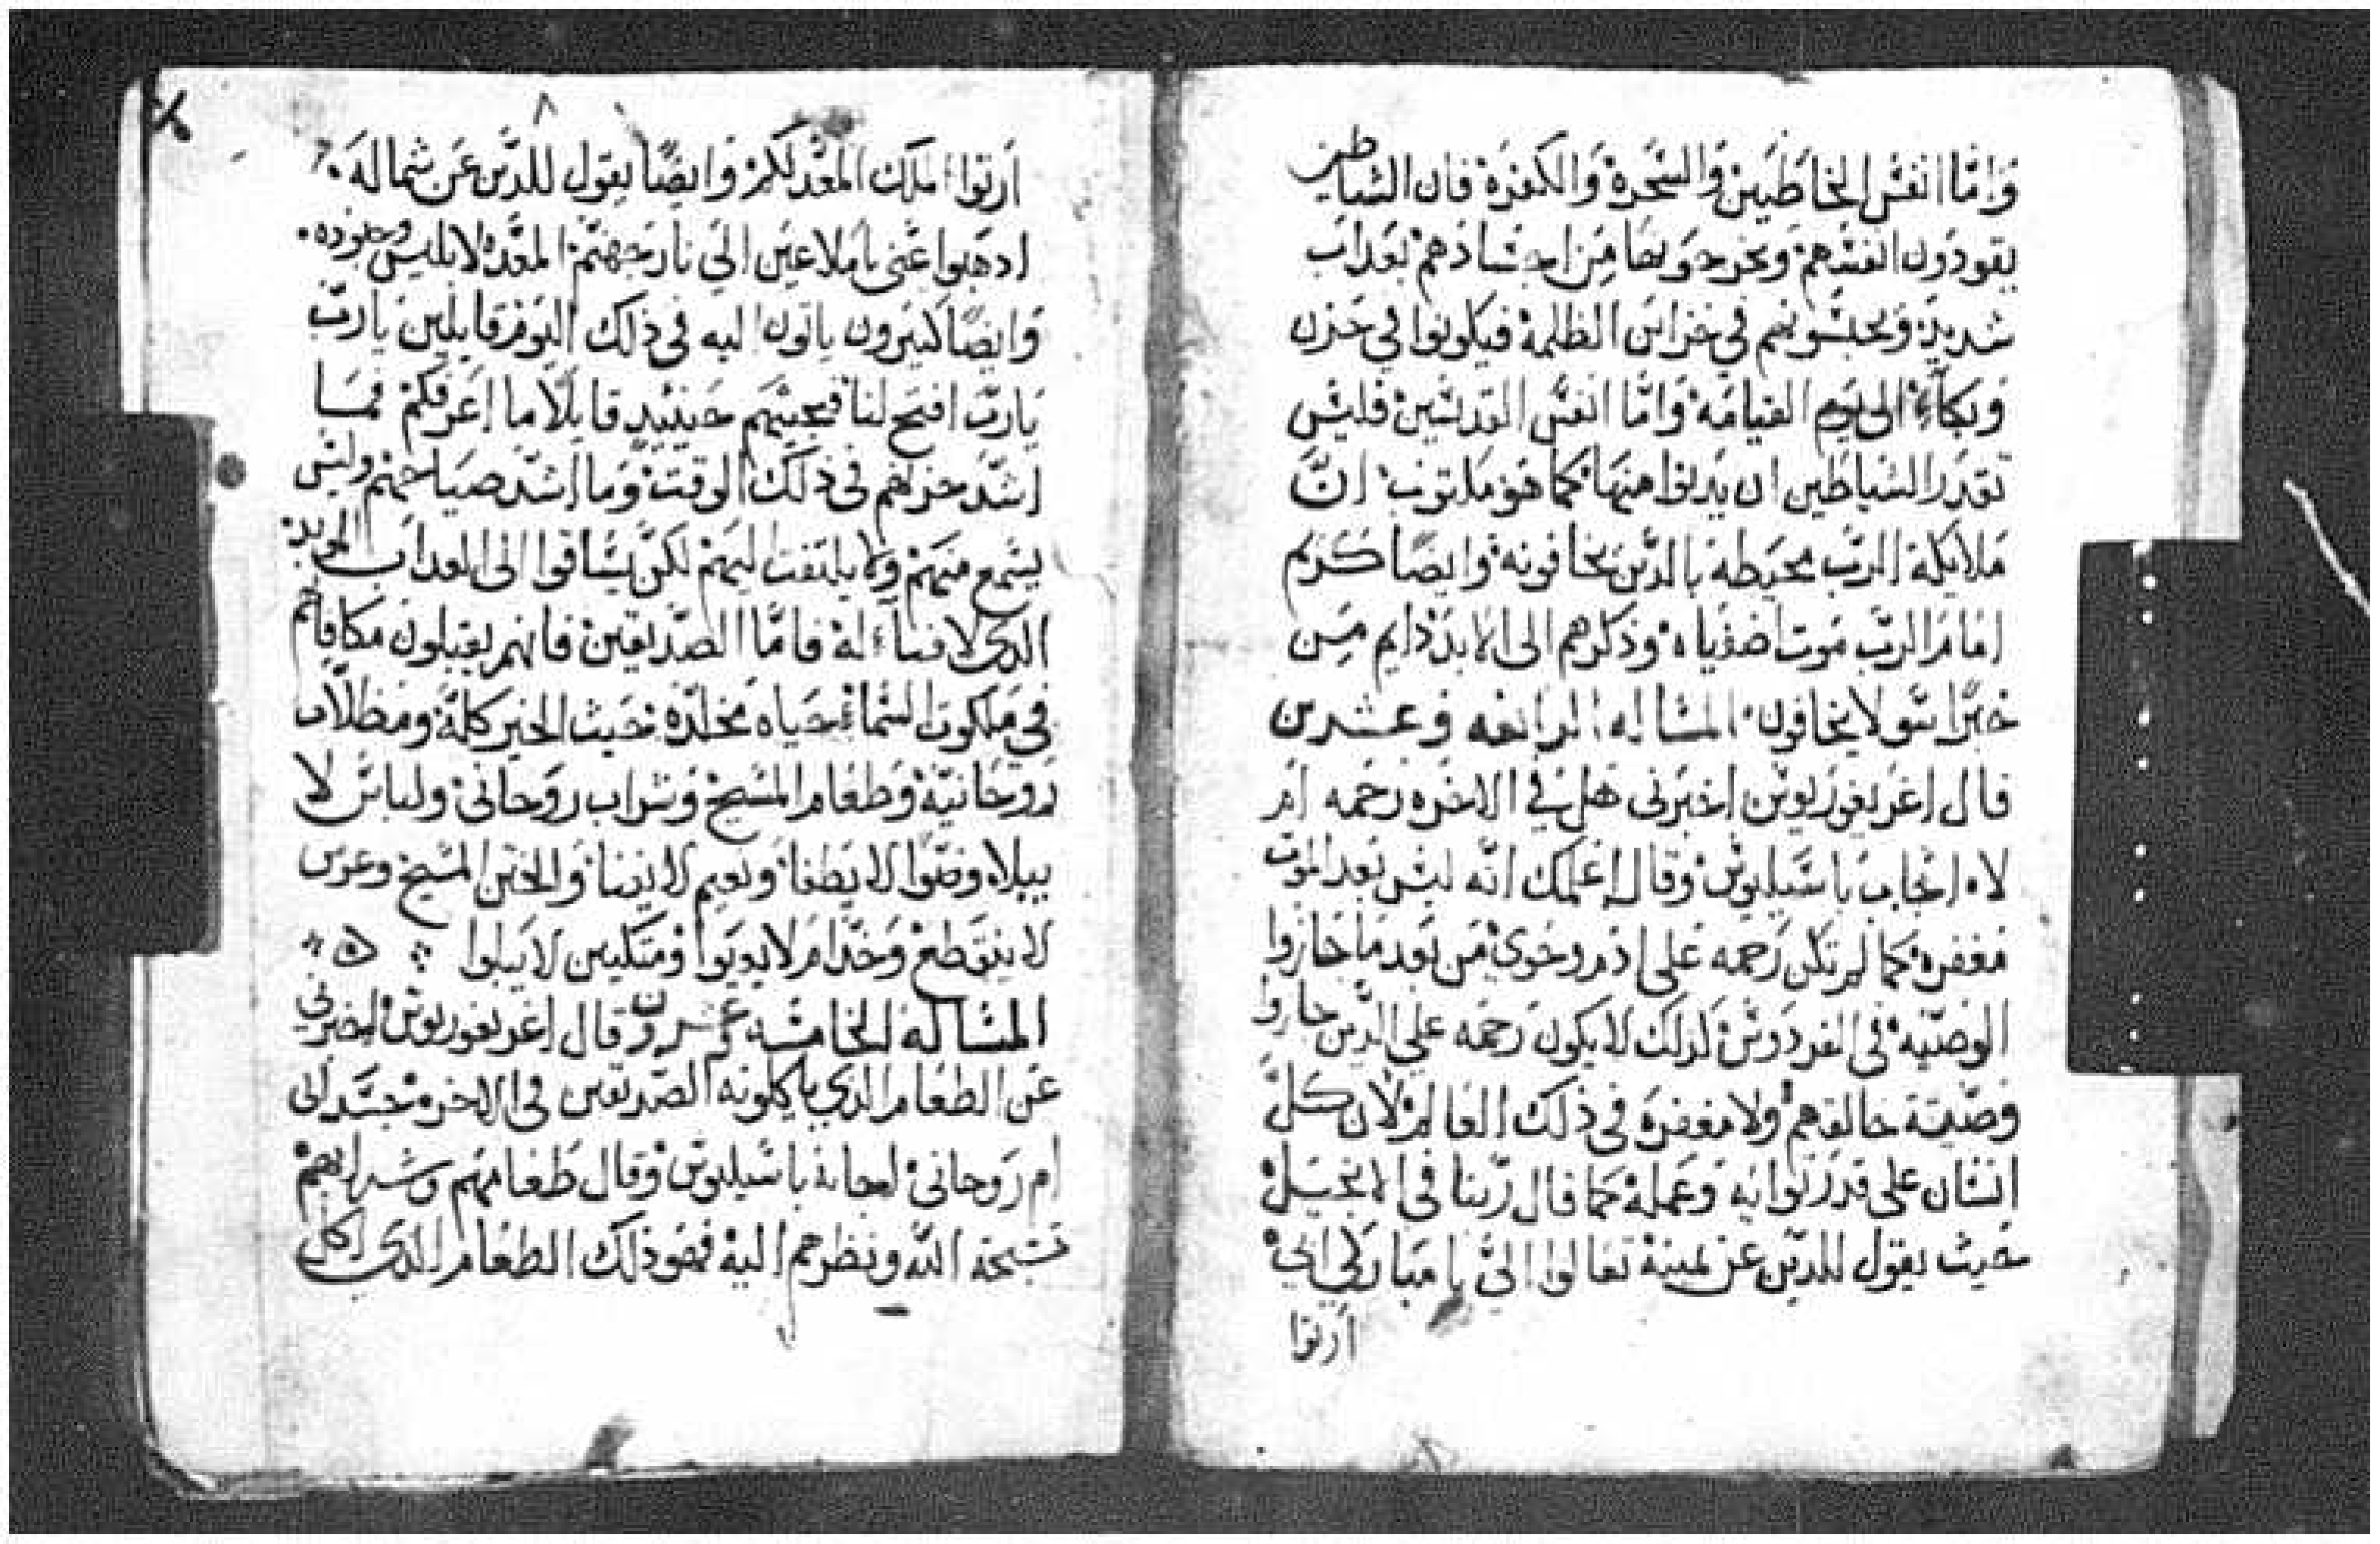 وَامّا انفس الخاطيين والسَحره والكفره فان الشياطين
يقودون انفسهم ويخرجونها مِن اجسادهم بعداب
شديد ويحبسونهم في خزاين الظلمة فيكونوا في حزن
وبكاء الى يوم القيامه وامّا انفس القديسين فليس
تقدر الشياطين ان يدنوا منها كما هو مكتوب انّ
ملايكة الرب محيطه بالدين يخافونه وايضًا كريم
امام الرب موت اصفياه ودكرهم الى الابد دايم مِن
خبرًا سو لا يخافون المساله الرابعه وعشرين
قال اغريغوريوس اخبرني هل في الاخره رحمه ام
لا اجاب باسيليوس وقال اعلمك انه ليس بعد الموت
مغفره كما لم تكن رحمه على ادم وحوى من بعد ما جازوا
الوصيّه في الفردوس لدلك لا يكون رحمه علي الدين جازوا
وصيّة خالقهم ولا مغفره في ذلك العالم لان كلّ
انسان على قدر توانيه وعمله كما قال ربنا في الانجيل
حيث يقول للدين عن يمينه تعالوا اليّ يا مباركي ابي
ارتوا
٨
ارتوا الملك المعد لكم وايضًا يقول للدين عن شماله
ادهبوا عني يا ملاعين الى نار جهنم المعدّه لابليس وجنوده
وايضًا كثيرون ياتون اليه في ذلك اليوم قايلين يا ربّ
يا ربّ افتح لنا فيجيبهم حينيدٍ قايلًا ما اعرفكم فمَا
اشدّ حزنهم في ذلك الوقت وما اشدّ صياحهم وليس
يسمع منهم ولا يلتفت اليهم لكن يساقوا الى العداب
الدي لا فناء له فامّا الصدّيقين فانهم يقبلون مكافاتهم
في ملكوت السماء حياه مخلدّه حيث الخير كله ومظلّات
روحانيّه وطعام المسيح وشراب روحاني ولباس لا
يبلا وضوًا لا يطفا ونعيم لا يفنا والختن المسيح وعرس
لا ينقطع وخدام لا يموتوا ومتكيين لا يبلوا
المساله الخامسه وعشرين قال اغريغوريوس اخبرني
عن الطعام الدي ياكلونه الصدّيقين في الاخره جسداني
ام روحاني اجابه باسيليوس وقال طعامهم وشرابهم
تسبحة الله ونظرهم اليه فهو ذلك الطعام الدي اكل